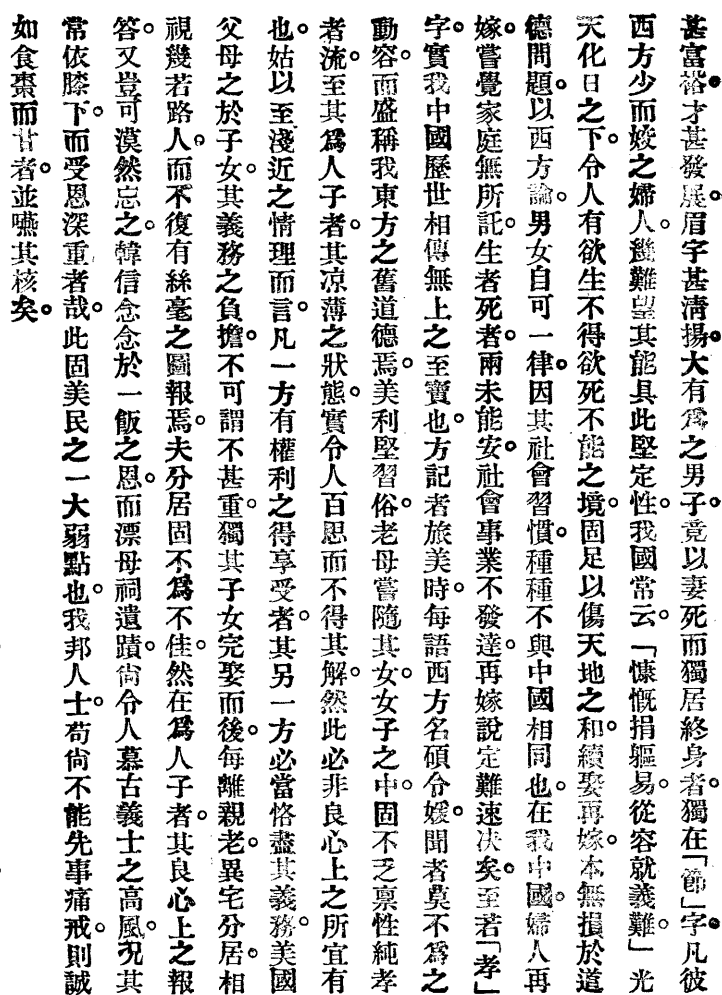 甚富裕。才甚發展。眉宇甚淸揚。大有爲之男子。竟以妻死而獨居終身者。獨在「節」字。凡彼
西方少而姣之婦人。幾難望其能具此堅定性。我國常云。「慷慨捐軀易。從容就義難」光
天化日之下。令人有欲生不得欲死不能之境。固足以傷天地之和。續娶再嫁。本無損於道
德問題。以西方論。男女自可一律。因其社會習慣。種種不與中國相同也。在我中國。婦人再
嫁。嘗覺家庭無所託。生者死者。兩未能安。社會事業不發達。再嫁說定難速决矣。至若「孝」
字。實我中國歷世相傳無上之至寶也。方記者旅美時。每語西方名碩令媛。聞者莫不爲之
動容。而盛稱我東方之舊道德焉。美利堅習俗。老母嘗隨其女。女子之中。固不乏禀性純孝
者流。至其爲人子者。其凉薄之狀態。實令人百思而不得其解。然此必非良心上之所宜有
也。姑以至淺近之情理而言。凡一方有權利之得享受者。其另一方必當恪盡其義務。美國
父母之於子女。其義務之負擔。不可謂不甚重。獨其子女完娶而後。每離親老。異宅分居。相
視幾若路人。而不復有絲毫之圖報焉。夫分居固不爲不佳。然在爲人子者。其良心上之報
答。又豈可漠然忘之。韓信念念於一飯之恩。而漂母祠遺蹟。尙令人慕古義士之高風。况其
常依膝下。而受恩深重者哉。此固美民之一大弱點也。我邦人士。苟尙不能先事痛戒。則誠
如食棗而甘者。並嚥其核矣。